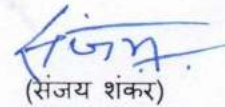 (संजय शंकर)